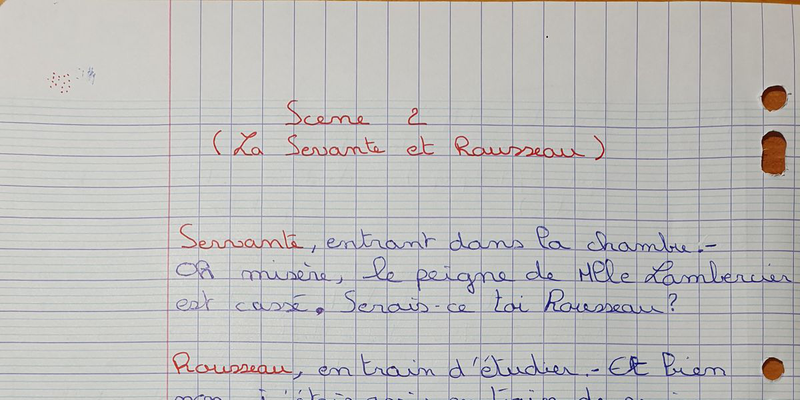 Scene 2
(La Servante et Rousseau)
Servante, entrant dans la chambre.-
Oh misère, le peigne de Mlle Lambercier
est cassé. Serais-ce toi Rousseau?
Rousseau, en train d'étudier.- Et bien
non j'étais